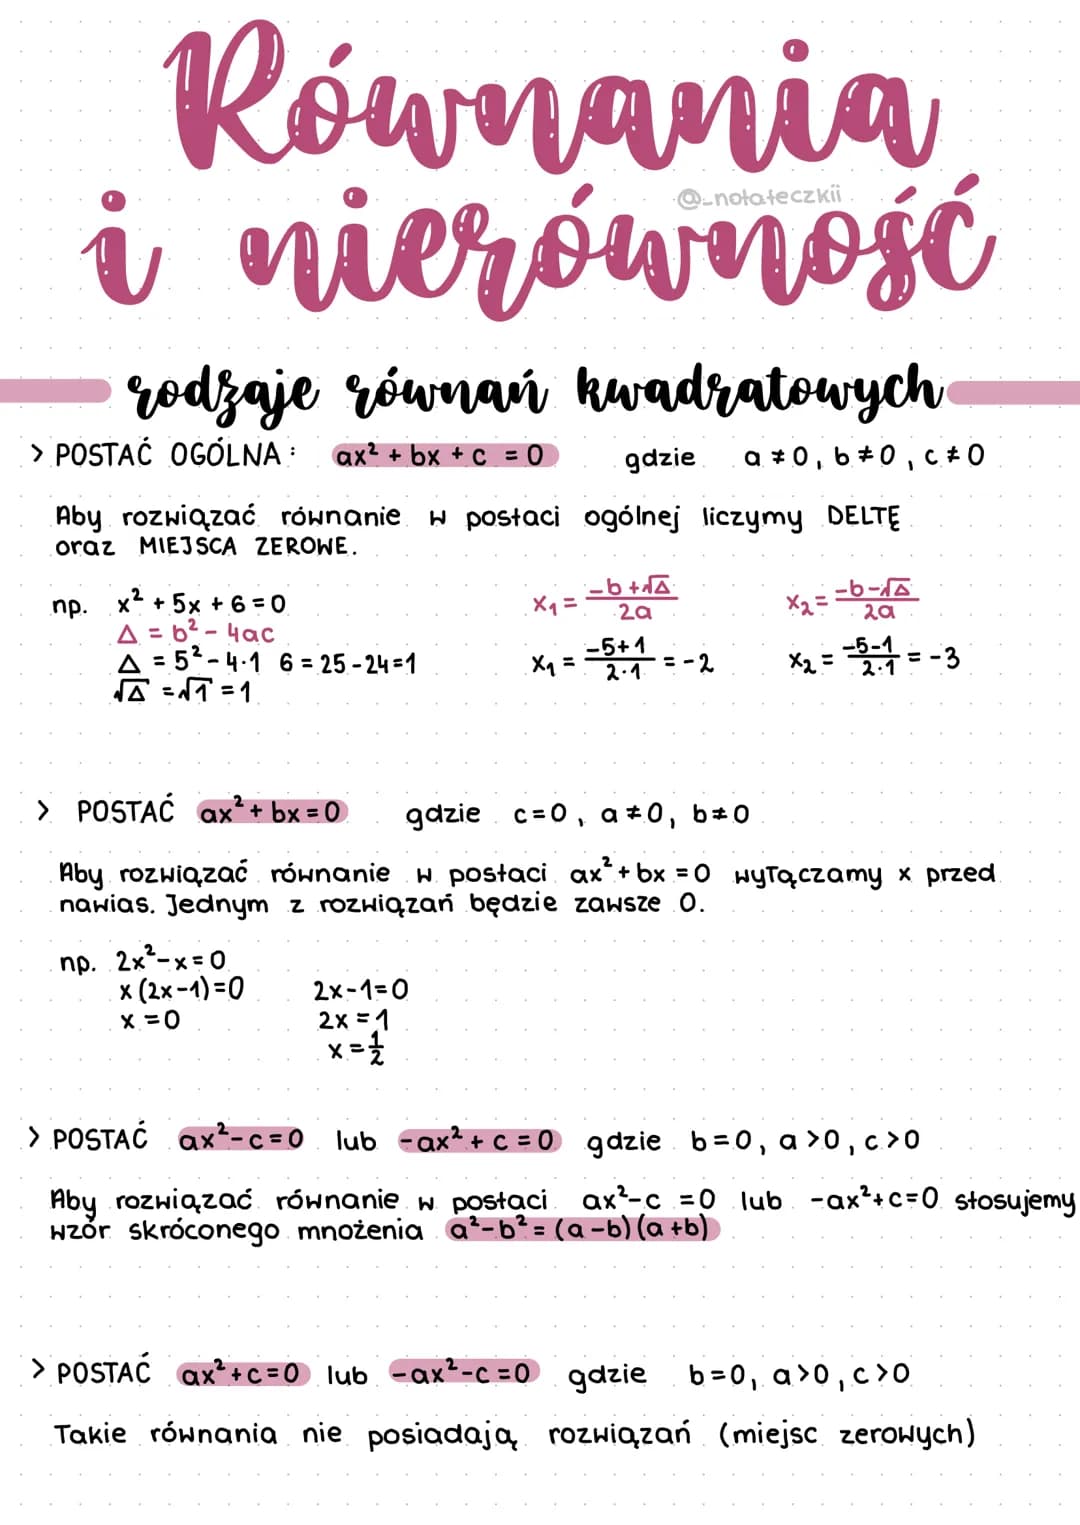 Równania
@_notateczkii
i nierówność
rodzaje równań kwadratowych
> POSTAĆ OGÓLNA: ax² + bx + c = 0 gdzie a ≠ 0, b ≠ 0, c ≠ 0
Aby rozwiązać równanie w postaci ogólnej liczymy DELTĘ
oraz MIEJSCA ZEROWE.
np. x² + 5x + 6 = 0
Δ = b² - 4ac
Δ = 5² - 4·1 6 = 25 - 24 = 1
√Δ = √1 = 1
x₁ = (-b+√Δ)/2a x₂ = (-b-√Δ)/2a
x₁ = (-5+1)/(2·1) = -2 x₂ = (-5-1)/(2·1) = -3
> POSTAĆ ax² + bx = 0 gdzie c = 0, a ≠ 0, b ≠ 0
Aby rozwiązać równanie w postaci ax² + bx = 0 wyłączamy x przed
nawias. Jednym z rozwiązań będzie zawsze 0.
np. 2x² - x = 0
x (2x-1) = 0 2x-1=0
x = 0 2x = 1
x = 1/2
> POSTAĆ ax² - c = 0 lub -ax² + c = 0 gdzie b = 0, a > 0, c > 0
Aby rozwiązać równanie w postaci ax² - c = 0 lub -ax² + c = 0 stosujemy
wzór skróconego mnożenia a² - b² = (a - b)(a + b)
> POSTAĆ ax² + c = 0 lub -ax² - c = 0 gdzie b = 0, a > 0, c > 0
Takie równania nie posiadają rozwiązań (miejsc zerowych)